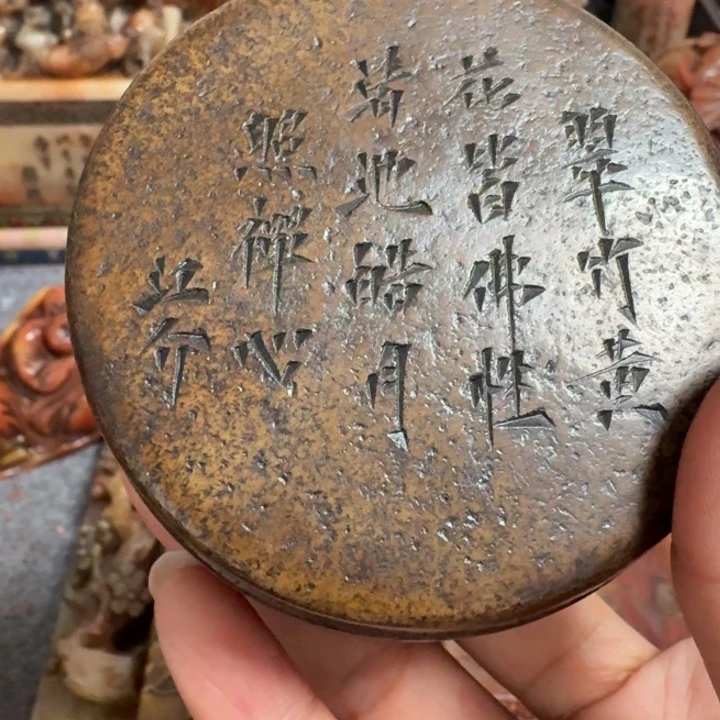 翠竹黄
花皆佛性
清池皓月
照禪心
江介